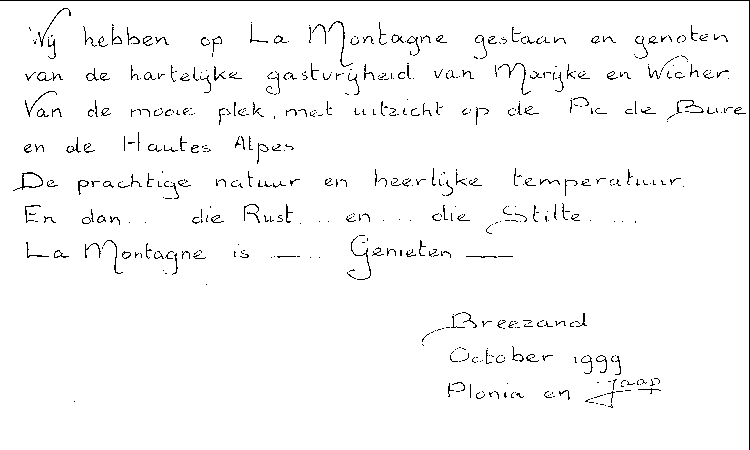 Wij hebben op La Montagne gestaan en genoten
van de hartelijke gastvrijheid van Marijke en Wicher.
Van de mooie plek, met uitzicht op de Pic de Bure
en de Hautes Alpes
De prachtige natuur en heerlijke temperatuur.
En dan... die Rust... en... die Stilte....
La Montagne is —... Genieten —
Breezand
October 1999
Plonia en Jaap